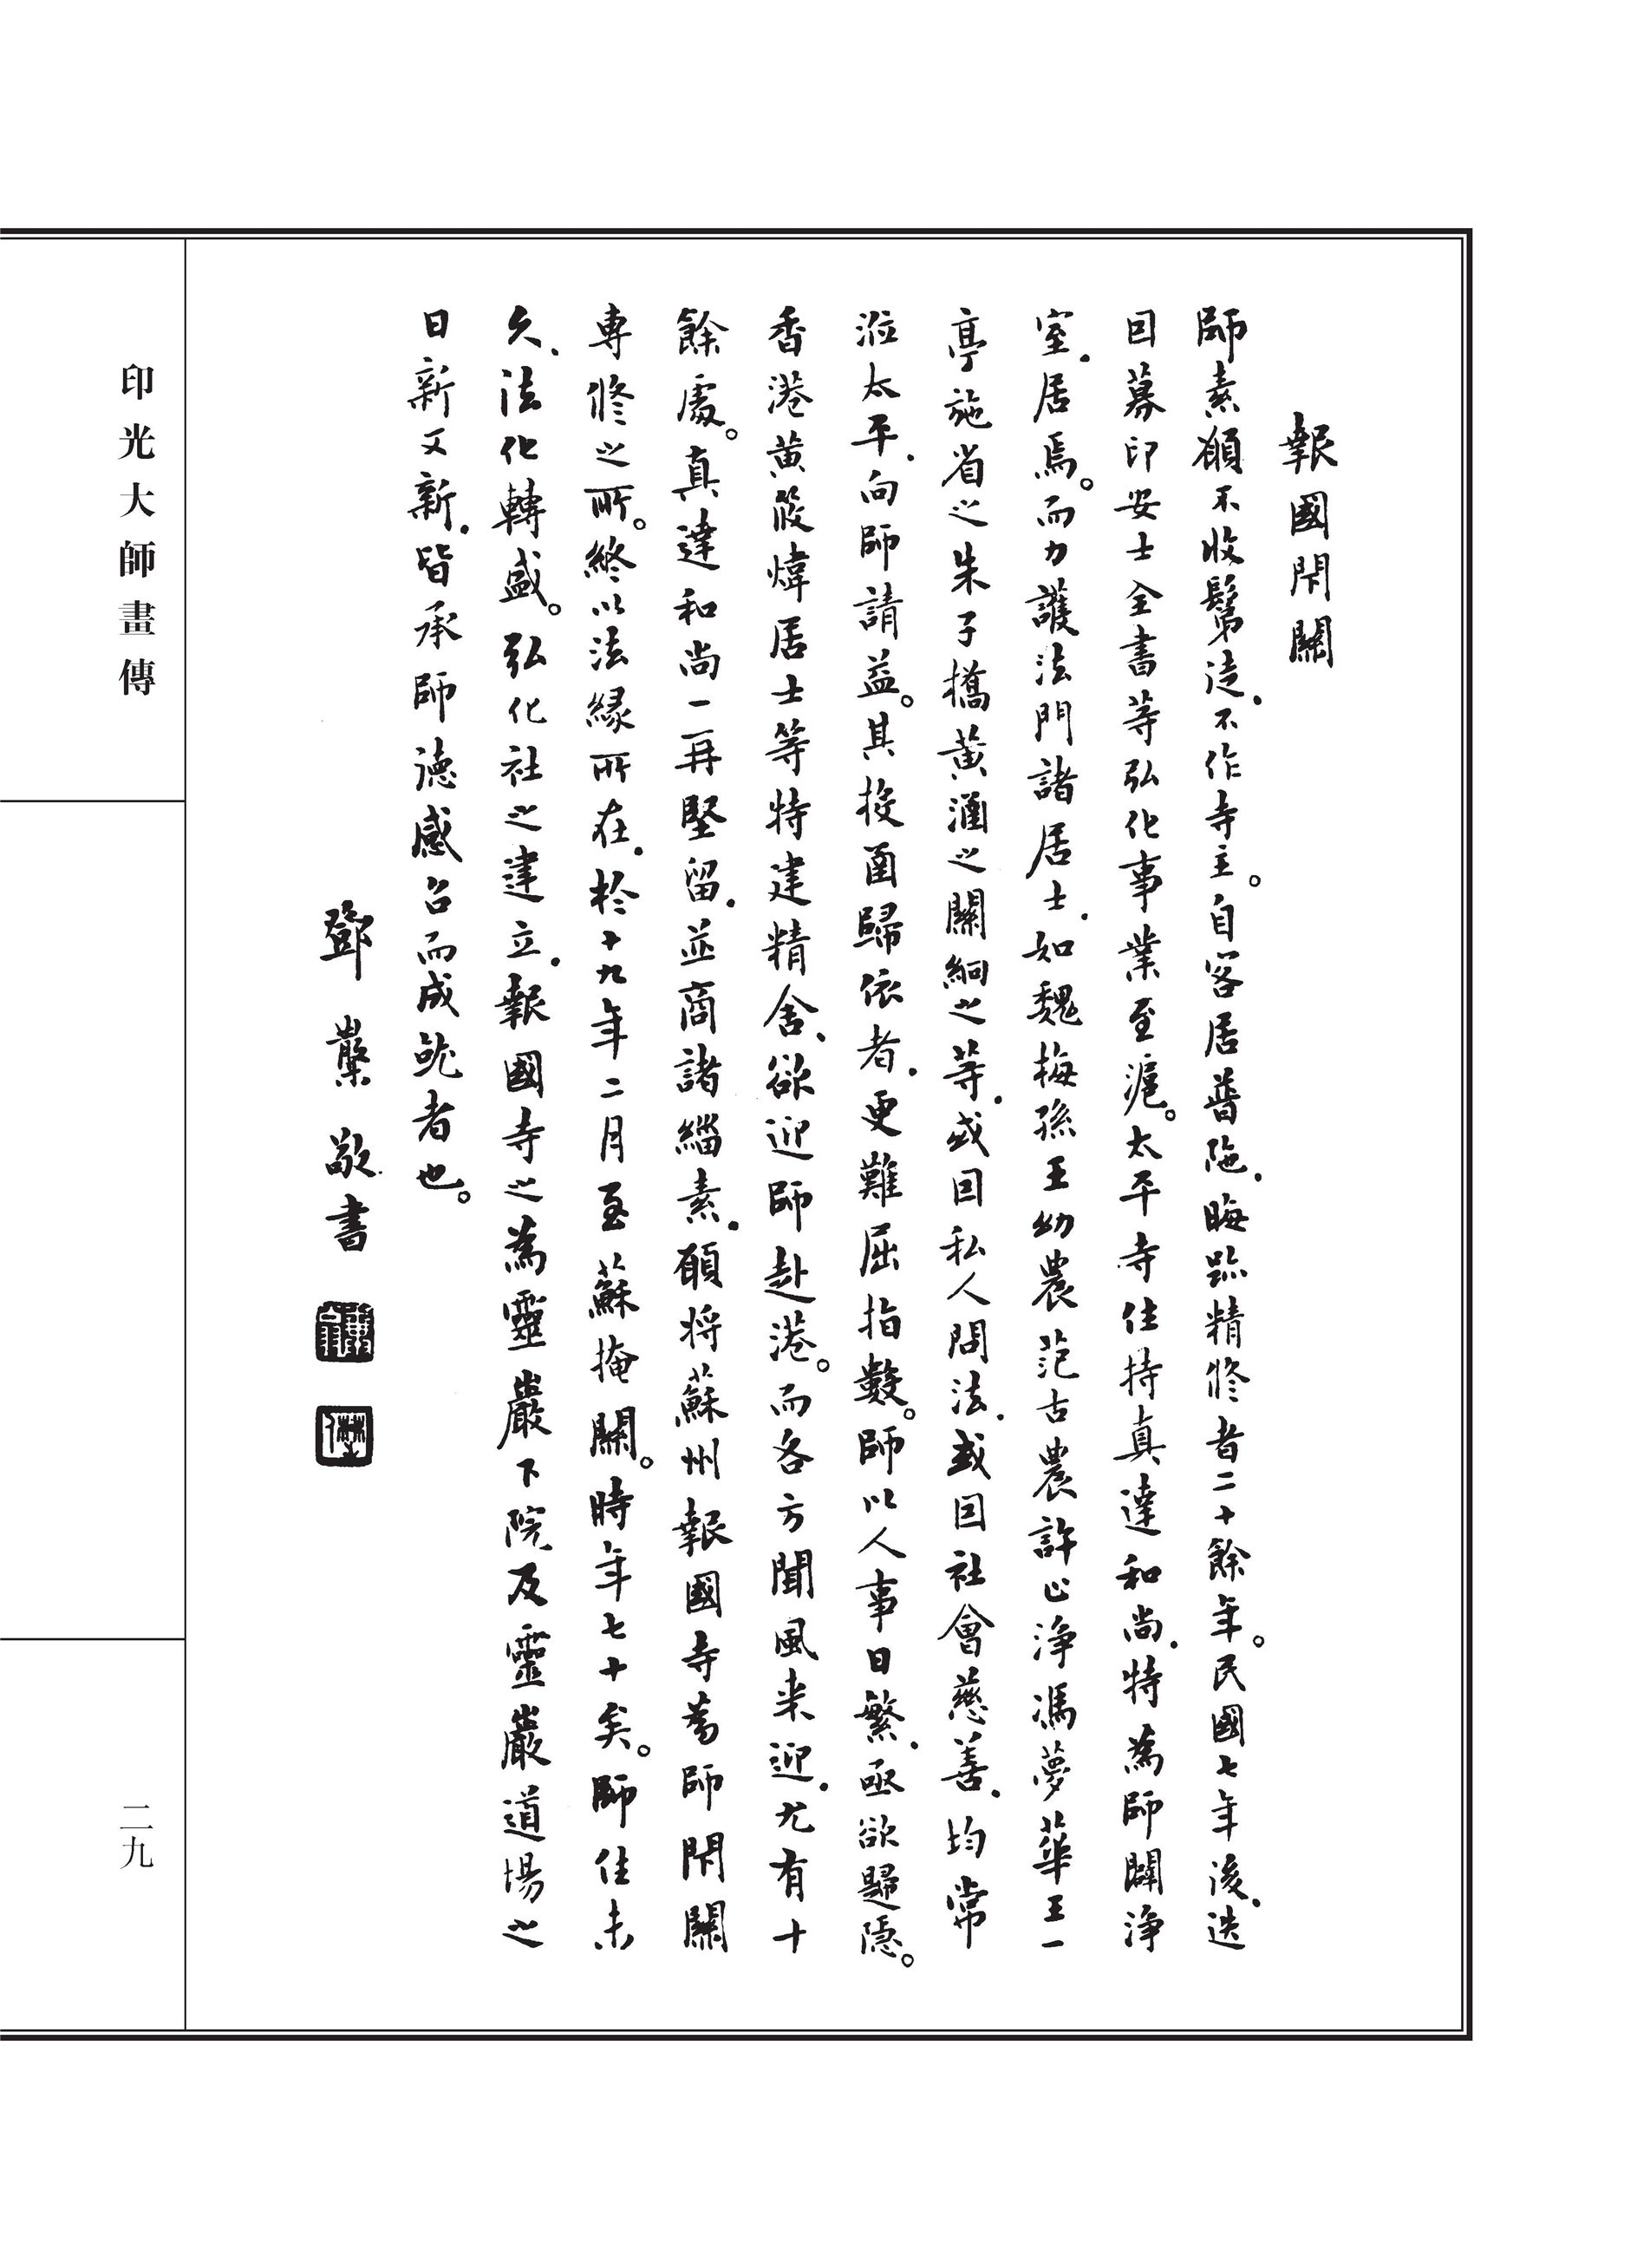 報國閉關
師素願不收鬀徒．不作寺主。自客居普陀．晦跡精修者二十餘年。民國七年後．迭
因募印安士全書等弘化事業至滬。太平寺住持真達和尚．特為師闢淨
室．居焉。而力護法門諸居士．如魏梅孫王幼農范古農許止淨馮夢華王一
亭施省之朱子橋黃涵之關絅之等．或因私人問法．或因社會慈善．均常
蒞太平．向師請益。其投函歸依者．更難屈指數。師以人事日繁．亟欲歸隱。
香港黃筱煒居士等特建精舍．欲迎師赴港。而各方聞風來迎．尤有十
餘處。真達和尚一再堅留．並商諸緇素．願將蘇州報國寺為師閉關
專修之所。終以法緣所在．於十九年二月至蘇掩關。時年七十矣。師住未
久．法化轉盛。弘化社之建立．報國寺之為靈巖下院及靈巖道場之
日新又新．皆承師德感召而成就者也。
鄧 敬書
印光大師畫傳
二九